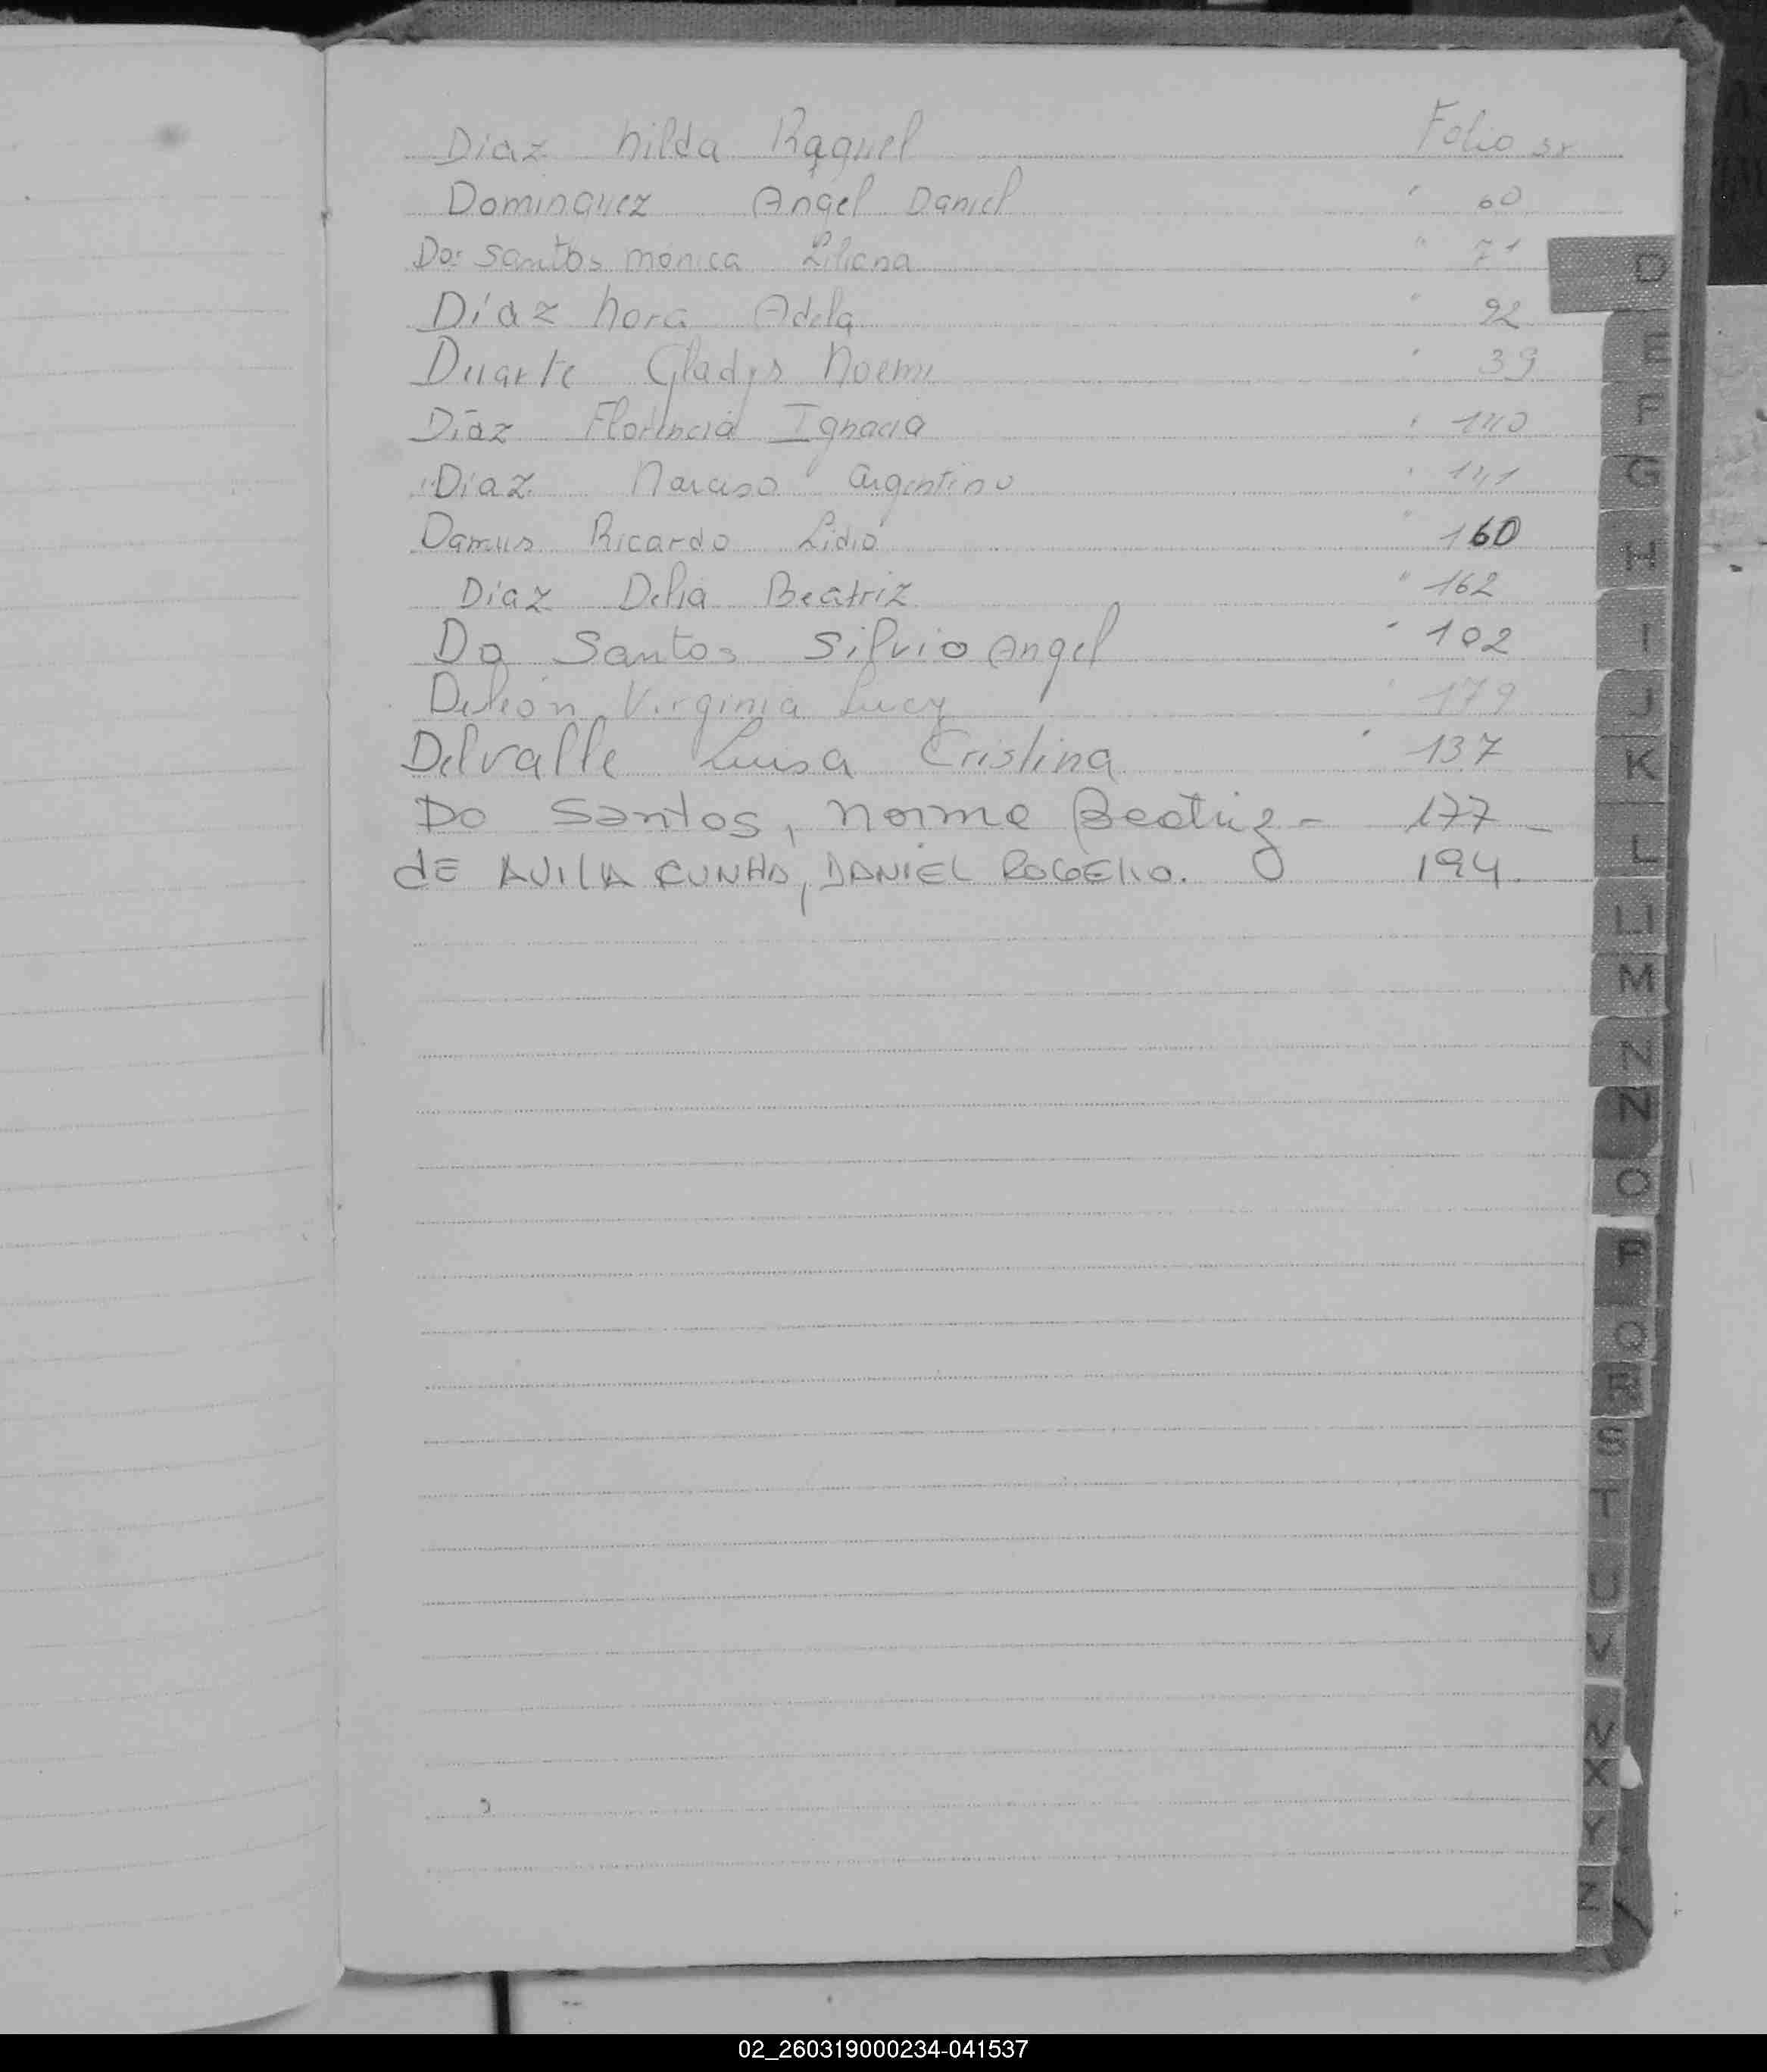 Diaz hilda Raquel Folio
Dominguez Angel Daniel " 60
Dos Santos mónica Liliana " 71
Díaz nora Adela " 92
Duarte Gladys noemi " 39
Díaz Florencia Ignacia " 140
Díaz Narciso argentino " 141
Damus Ricardo Lidio " 160
Díaz Delia Beatriz " 162
Do Santos Silvio Angel " 102
Deleón Virginia Lucy " 179
Delvalle Luisa Cristina " 137
Do Santos, norma Beatriz - 177 -
dE AVILA CUNHA, DANIEL ROGELIO. 194.
D
E
F
G
H
I
J
K
L
Ll
M
N
Ñ
O
P
Q
R
S
T
U
V
W
X
Y
Z
02_260319000234-041537